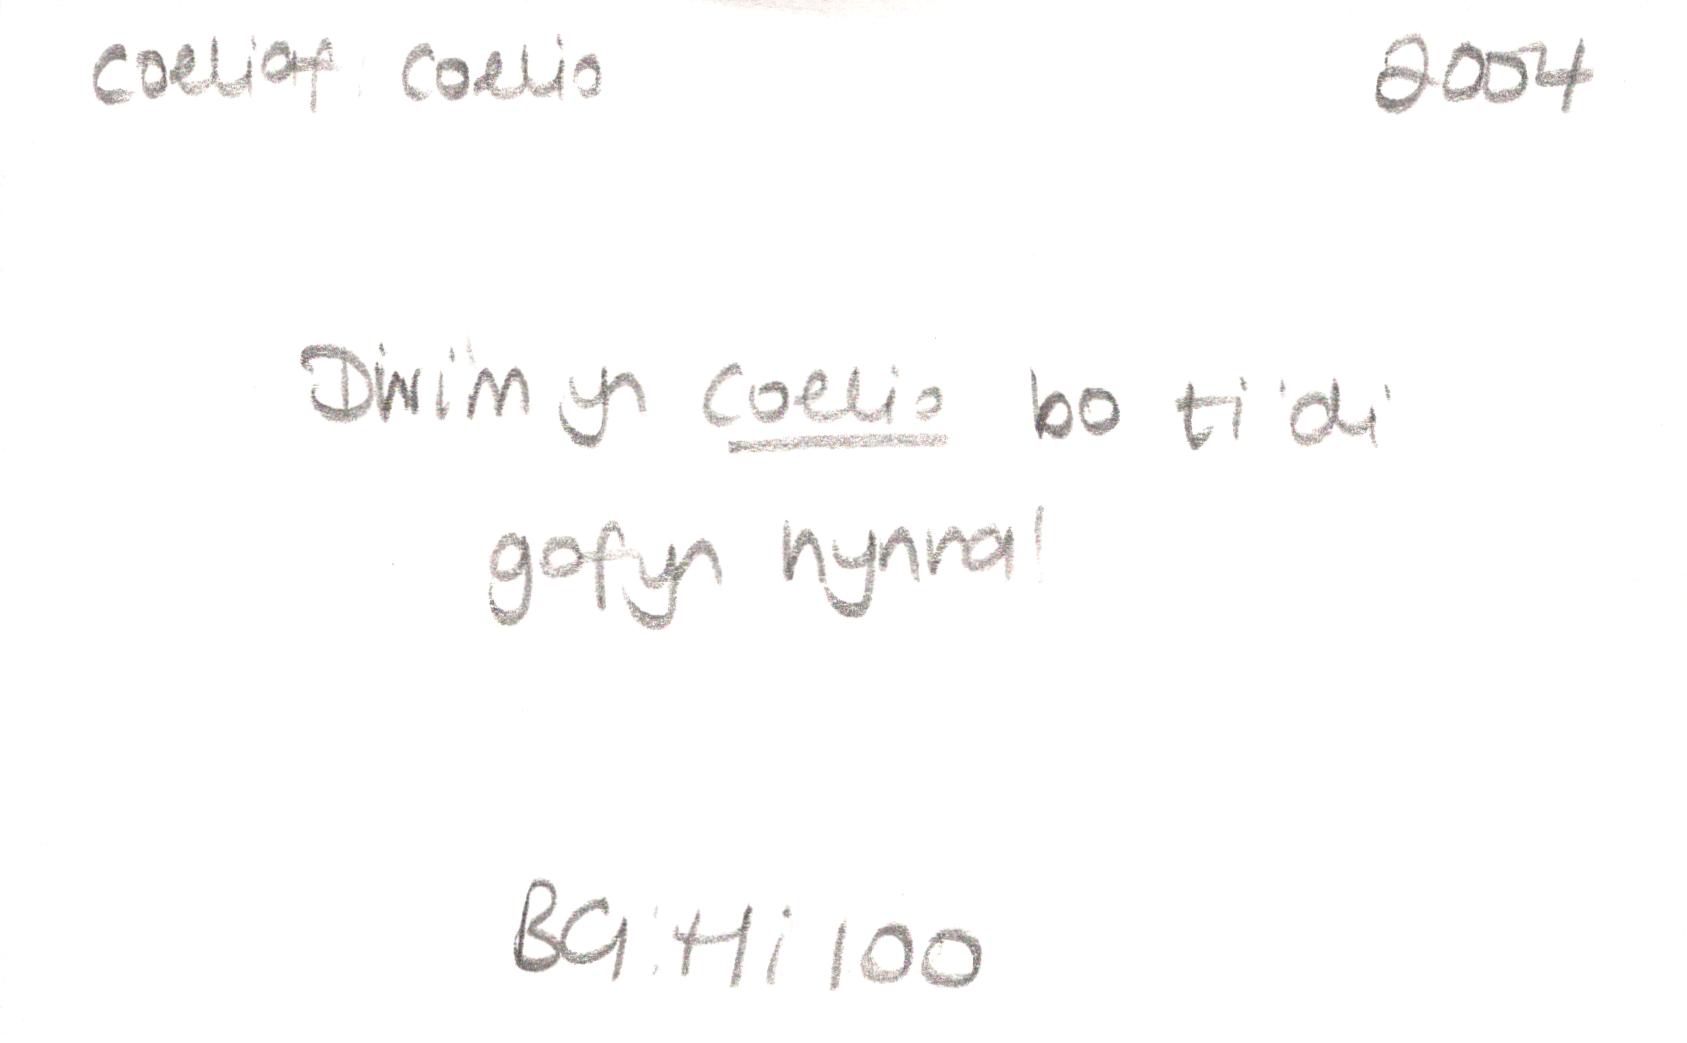 coeliaf: coelio 2004
Dwi'm yn coelio bo ti 'di
gofyn hynna!
BG: Hi 100